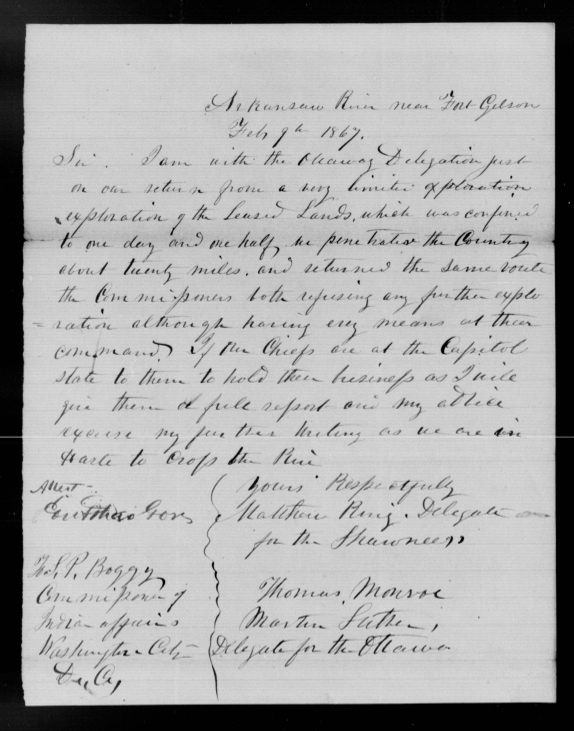 Arkansaw River near Fort Gibson
Feb 9th 1867.
Sir. I am with the Ottaway Delegation just
on our return from a very limited exploration
exploration of the Leased Lands, which was confined
to one day and one half, we penetrated the Country
about twenty miles, and returned the same route
the Commissioners both refusing any further explo
=ration although having every means at their
command. If our Chiefs are at the Capitol
state to them to hold their business as I will
give them a full report and my advice
excuse my further writing as we are in
haste to cross the River
Yours Respectfully
Matthew King. Delegate
for the Shawnees
Thomas Monroe
Martin Luther,
Delegate for the Ottawa
Attest
L. P. Boggy
Commissioner of
Indian affairs
Washington City